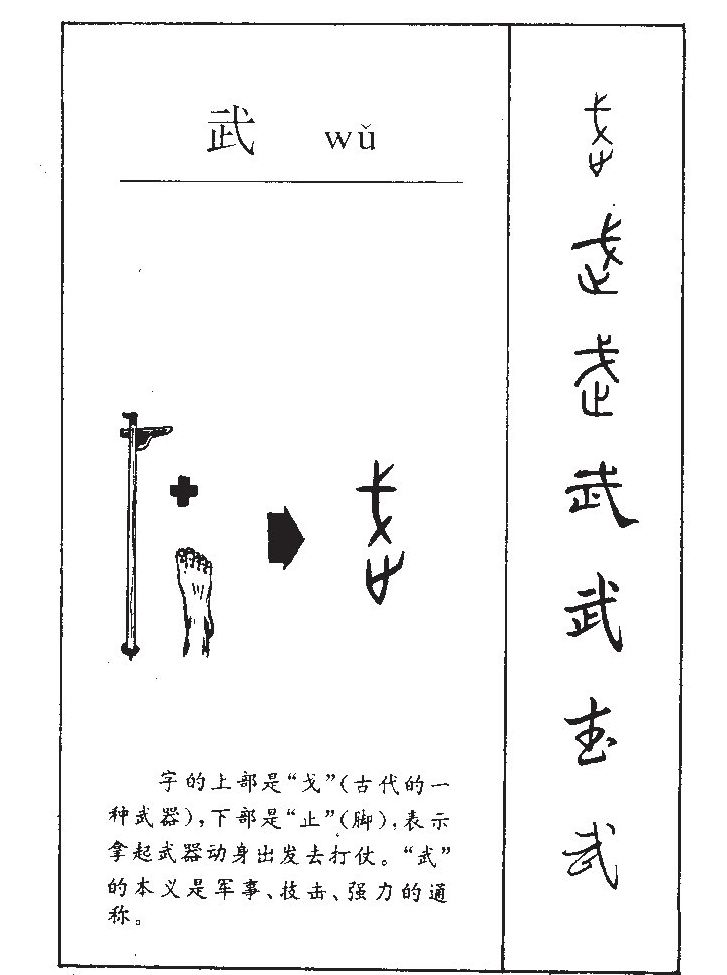 武 wǔ
字的上部是“戈”(古代的一
种武器),下部是“止”(脚),表示
拿起武器动身出发去打仗。“武”
的本义是军事、技击、强力的通
称。
武
武
武
武
武
武
武
武